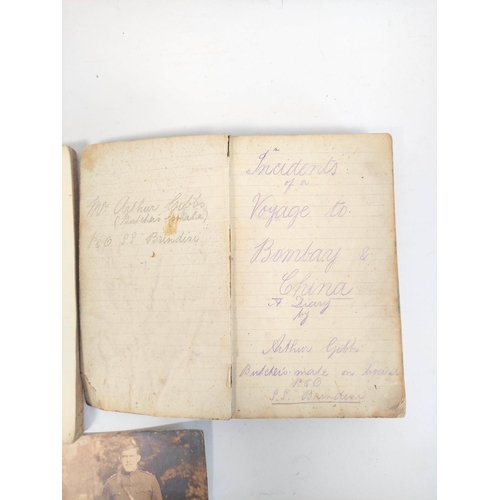 Mr Arthur Gibbs
(Butcher's Mate)
P & O S.S. Brindisi
Incidents
of a
Voyage to
Bombay &
China
A Diary
by
Arthur Gibbs
Butcher's mate on board
P & O
S.S. Brindisi